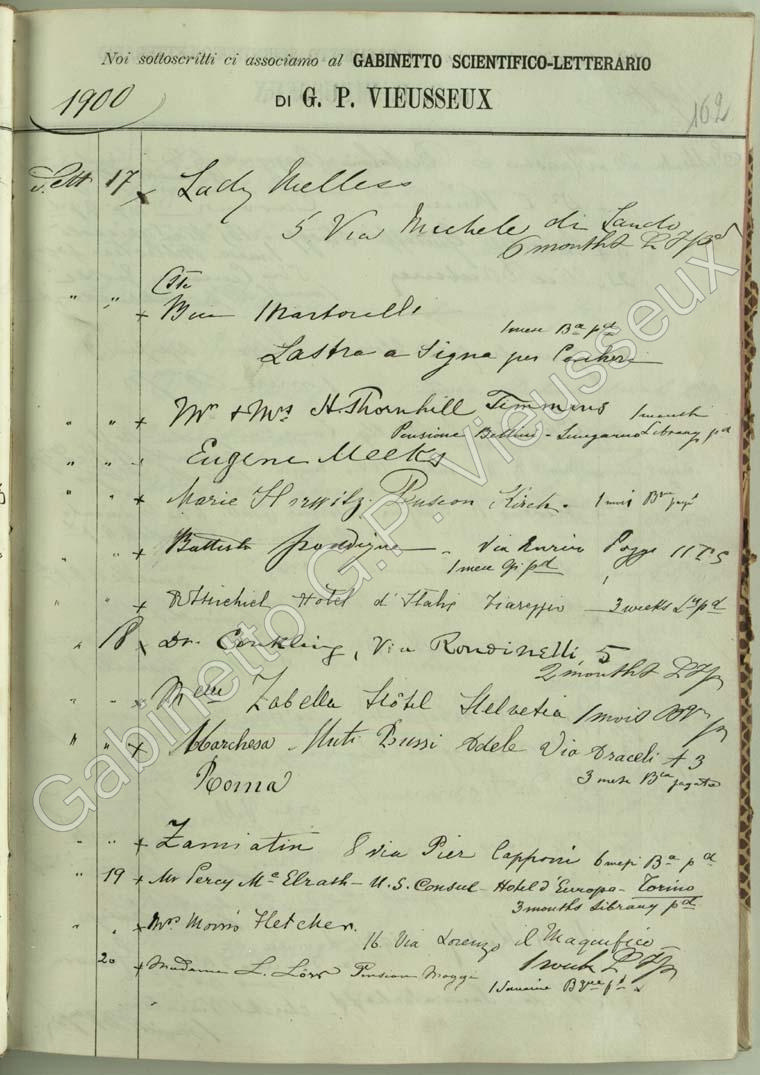 Noi sottoscritti ci associamo al GABINETTO SCIENTIFICO-LETTERARIO
1900
DI G. P. VIEUSSEUX
162
Sett 17 x Lady Melless
5 Via Michele di Lando
6 months
" " x
Martorelli
1 mese Ba pd
Lastra a Signa per
" " x Mr & Mrs H. Thornhill Timmins 1 month
Pensione Bellini - Lungarno Library pd
" " - Eugene Meeks
" " x Marie Horwitz. Pension Kirch. 1 mois
" " x Battista Via Enrico Poggi 11
1 mese pd
" " x Hotel d'Italie Viareggio - 3 weeks pd
" 18 x Dr. Conkling, Via Rondinelli, 5
2 months
" " x Zabella Hôtel Helvetia 1 mois
" " x Marchesa Muti Bussi Adele Via Araceli 3
Roma
3 mese Bca pagato
" " x Zamiatin 8 via Pier Capponi 6 mesi Ba pd
" 19 x Mr Percy McElrath - U.S. Consul - Hotel d'Europa - Torino
3 months Library pd
" " x Mrs Morris Fletcher.
16. Via Lorenzo il Magnifico
1 week
20 x Madame L. Pension
1 Semaine
Gabinetto G.P. Vieusseux